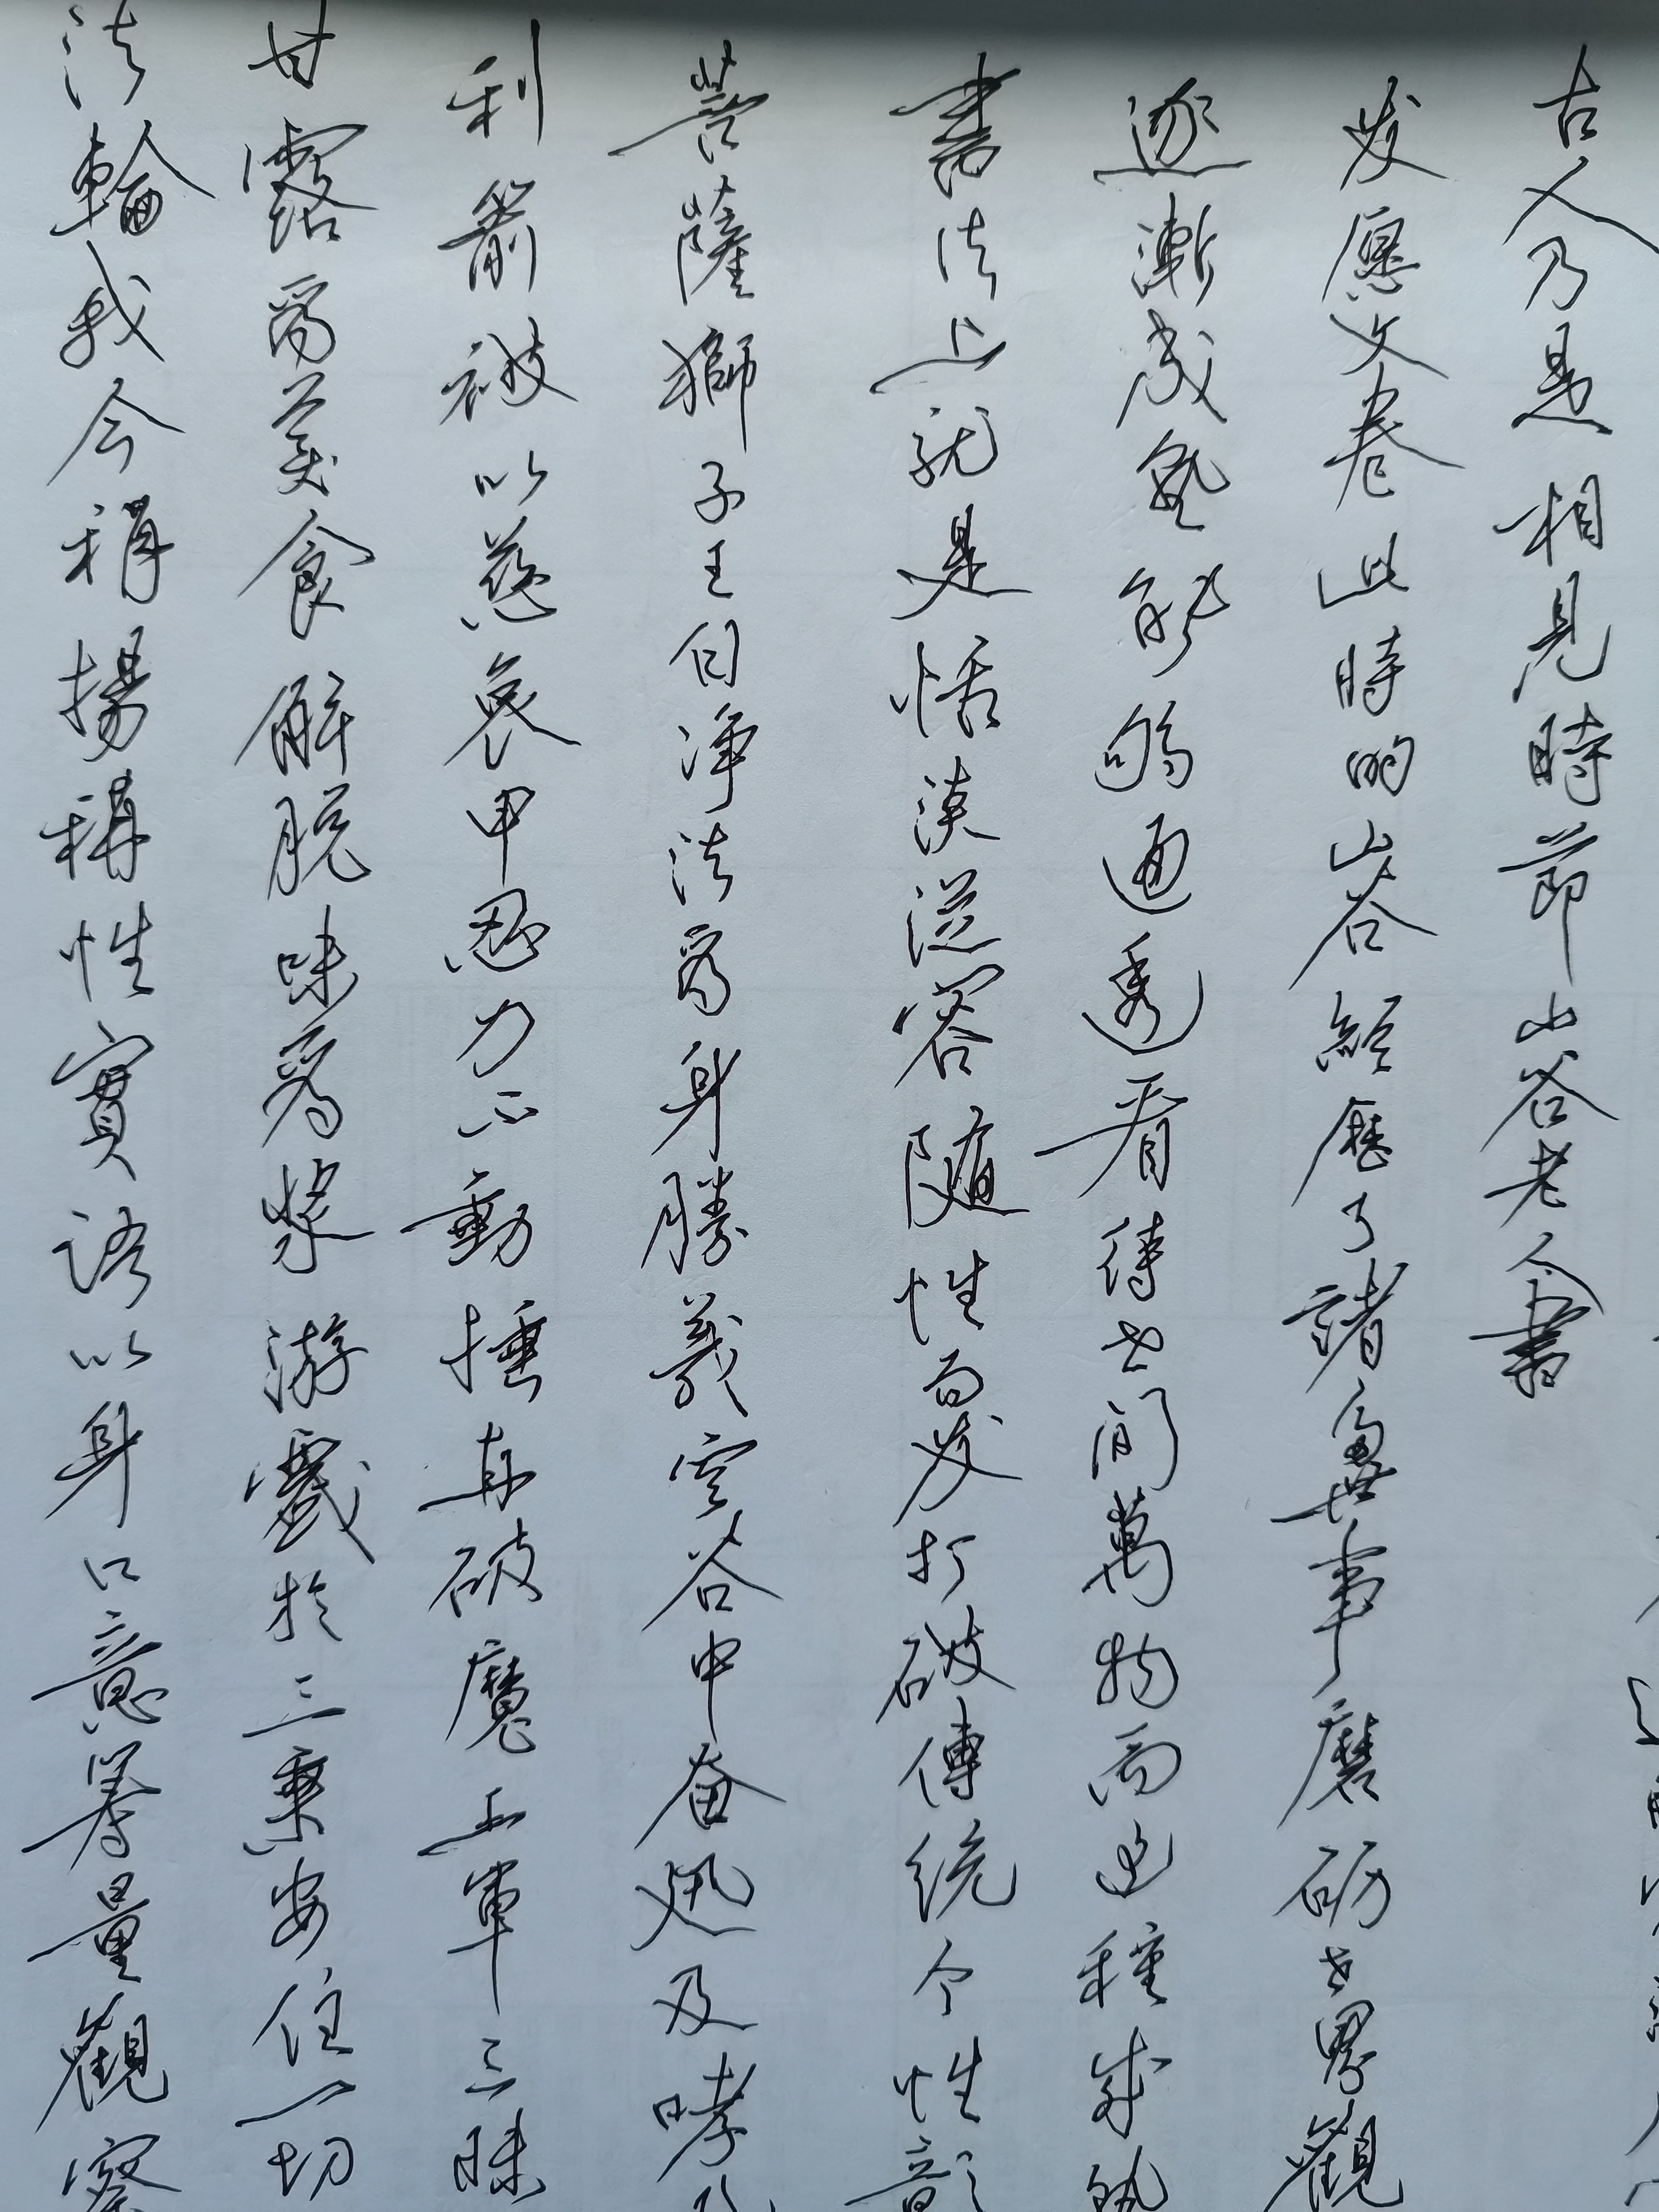 古人乃是相見時節山谷老人書
发愿文卷此時的山谷經歷了諸多世事磨砺世界觀
逐漸成熟能够通透看待世間萬物而这種成熟
書法上就是恬淡從容随性而发打破傳統个性
菩薩獅子王白净法爲身勝義空谷中奋迅及哮
利箭被以慈哀甲忍力不動摇直破魔王軍三昧
甘露爲美食解脱味爲漿游戲於三乘安住一切
法輪我今稱揚稱性實語以身口意籌量觀察